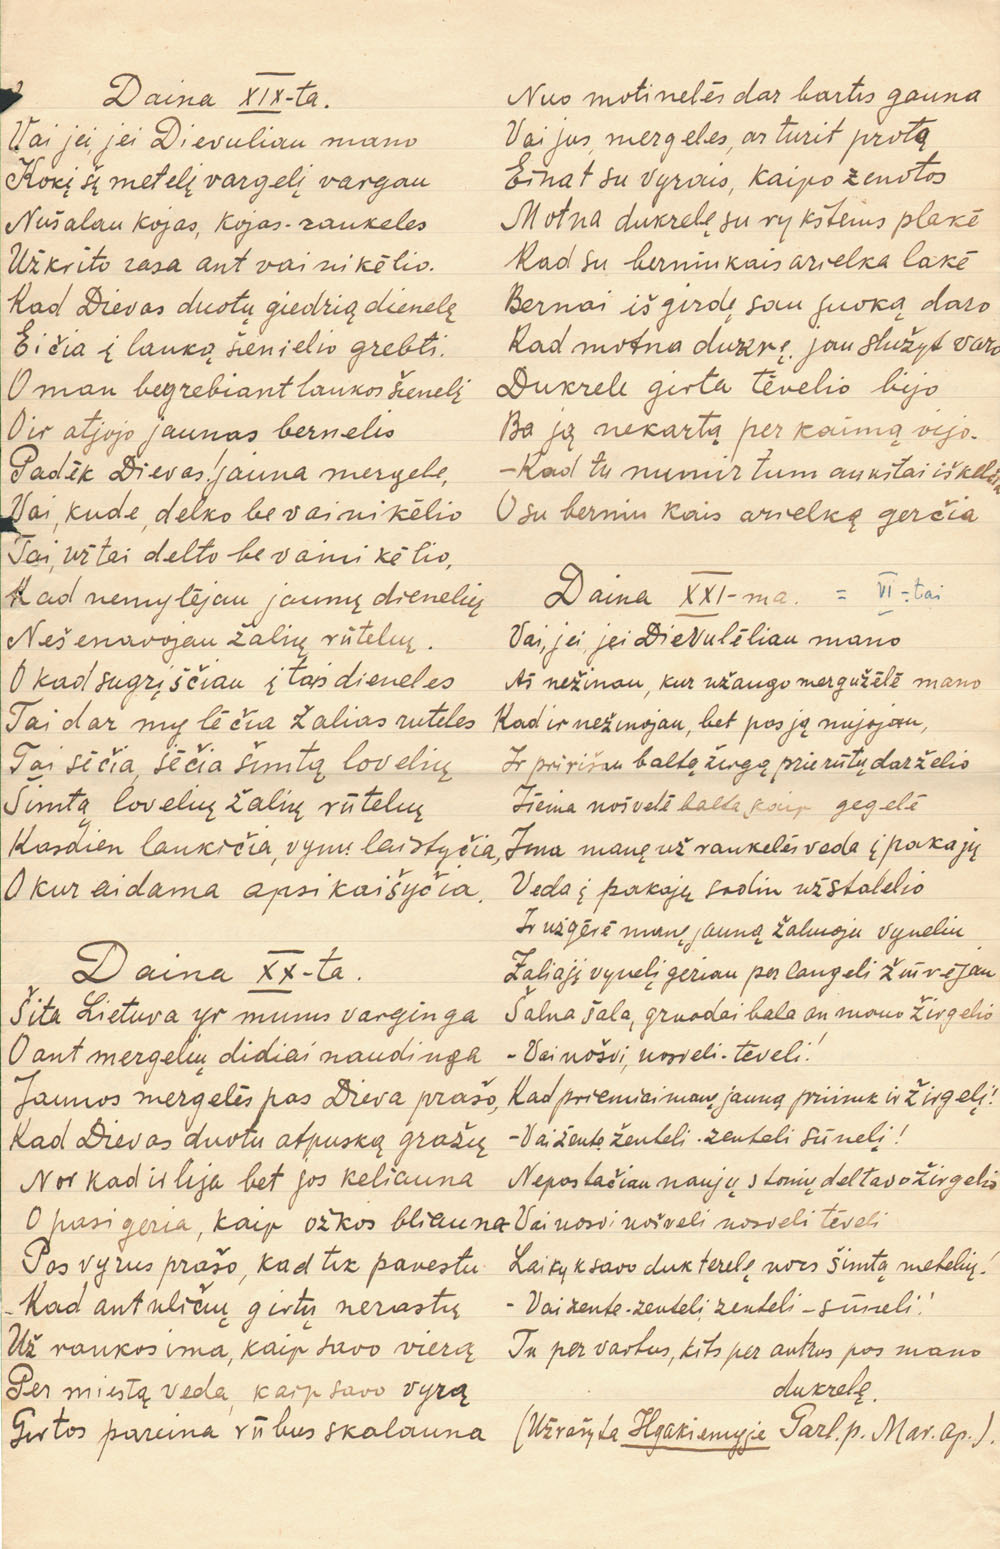 Daina XIX-ta.
Vai jei, jei Dievuliau mano
Kokį šį metelį vargelį vargau
Nušalau kojas, kojas-rankeles
Užkrito rasa ant vainikėlio.
Kad Dievas duotų giedrią dienelę
Eičia į lauką šienielio grebti.
O man begrebiant laukos šienelį
O ir atjojo jaunas bernelis
Padėk Dievas! jauna mergele,
Vai, kude, delko be vainikėlio
Tai, užtai delto be vainikėlio,
Kad nemylėjau jaunų dienelių
Nešenavojau žalių rūtelių.
O kad sugrįščiau į tas dieneles
Tai dar mylėčia žalias ruteles
Tai sėčia, sėčia šimtą lovelių
Šimtą lovelių žalių rūtelių
Kasdien lankičia, vynu laistyčia,
O kur eidama apsikaišyčia.
Daina XX-ta.
Šita Lietuva yr mums varginga
O ant mergelių didiai naudinga
Jaunos mergelės pas Dieva prašo,
Kad Dievas duotu atpuską gražų
Nor kad ir lija bet jos keliauna
O pasigeria, kaip ožkos bliauna
Pas vyrus prašo, kad tik pavestu
-Kad ant uličių girtų nerastų
Už rankos ima, kaip savo vierą
Per miestą veda, kaip savo vyrą
Girtos pareina rūbus skalauna
Nuo motinelės dar bartis gauna
Vai jus, mergeles, ar turit protą
Einat su vyrais, kaipo ženotos
Motna dukrelę su rykšteins plakė
Kad su berniukais arielka lakė
Bernai išgirdę sau juoką daro
Kad motna dukrę jau služyt varo
Dukrele girta tėvelio bijo
Ba ją nekartą per kaimą vijo.
-Kad tu numirtum aukstai iškelčia
O su berniukais arielką gerčia
Daina XXI-ma. = VI-tai
Vai, jei, jei Dievulėliau mano
Aš nežinau, kur užaugo mergužėlė mano
Kad ir nežinojau, bet pas ją nujojau,
Ir pririšau baltą žirgą prie rūtų darželio
Išeina nošvelė balta kaip gegelė
Ima manę už rankelės veda į pakajų
Veda į pakajų sodin už stalelio
Ir užgėrė manę jauną žaliuoju vyneliu
Žaliąjį vynelį gėriau per langeli žiūrėjau
Šalna šala, gruodai bala an mano žirgelio
-Vai nošvi, nosveli-teveli!
Kad priemiai manę jauną priimk ir žirgelį!
-Vai žente, ženteli-zenteli sūnelį!
Nepastačiau naujų stonių del tavo žirgelio
-Vai nosvi nošveli nosveli tėveli
Laikyk savo dukterelę nors šimtą metelių!
- Vai zente-zenteli, zenteli-sūneli!
Tu per vartus, kits per antrus pas mano
dukrelę.
(Užrašyta Ilgakiemyje Garl. p. Mar. ap.).